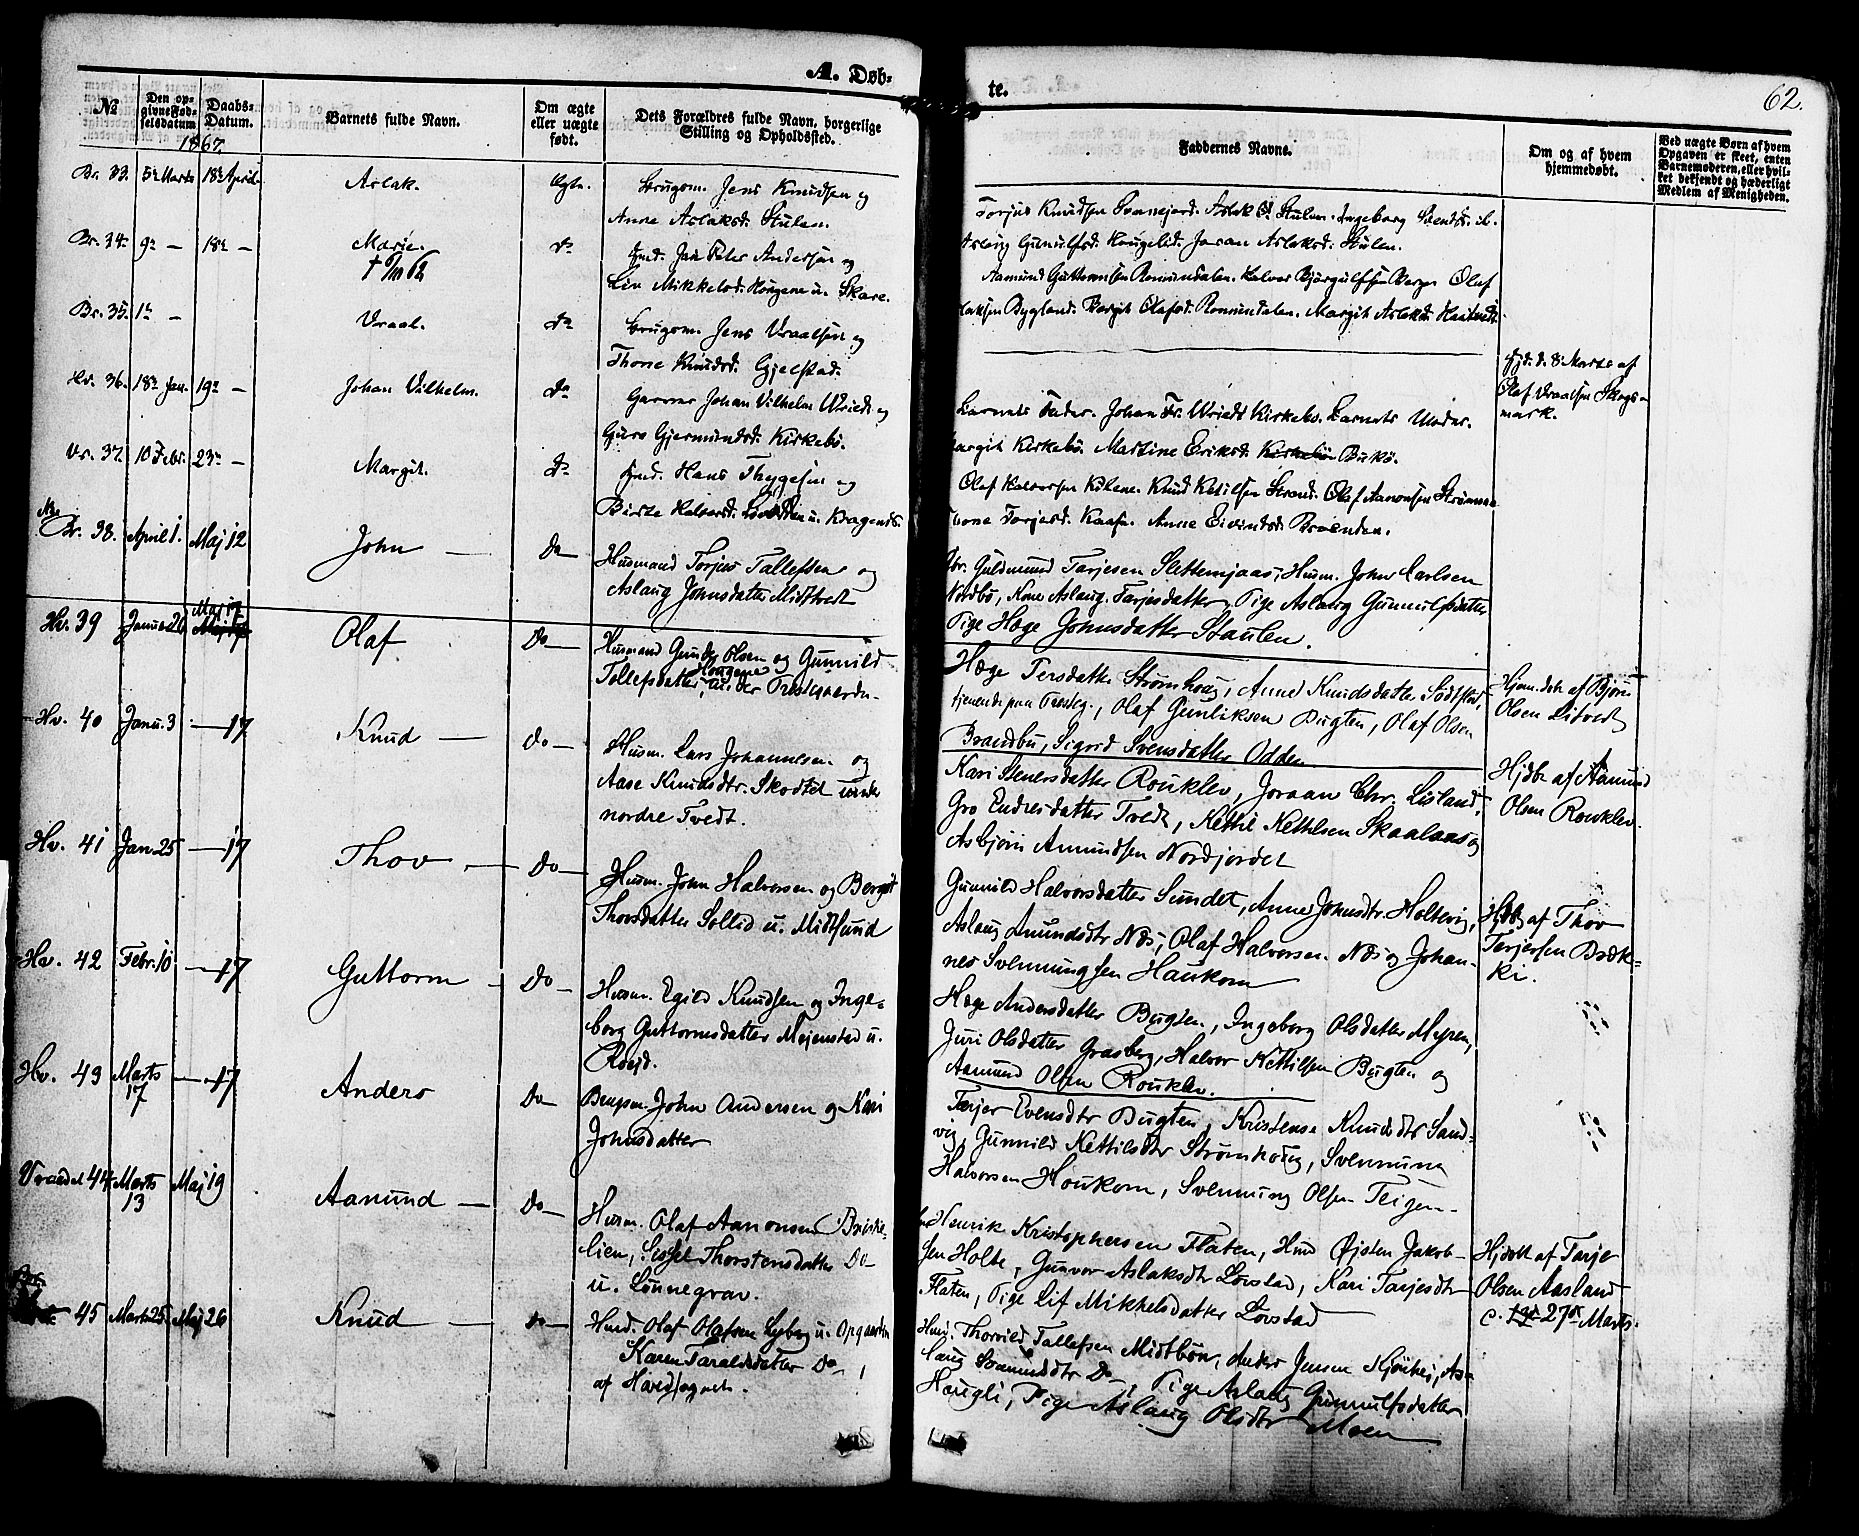 A. Døb-
te.
62.
№
Den op-
givne Fød-
selsdatum
Daabs-
Datum.
Barnets fulde Navn.
Om ægte
eller uægte
født.
Dets Forældres fulde Navn, borgerlige
Stilling og Opholdssted.
Faddernes Navne.
Om og af hvem
hjemmedøbt.
Ved uægte Børn af hvem
Opgaven er skeet, enten
Barnemoderen, eller hvil-
ket bekjendt og hæderligt
Medlem af Menigheden.
1867.
Br. 33. 5te Marts 18de April. Aslak. Ægte. Brugsm. Jens Knudsen og
Anne Aslaksd. Stulen.
Torjus Knudsen Aslak Stulen. Ingeborg
Aslaug Gunulfsd. Haugelid. Joran Aslaksd. Stulen.
Br. 34. 9de — 18de — Marie. Do Jens Peter Andersen og
Liv Mikkelsd. Haugene u. Skare.
Aamund Guttormsen Romundalen. Halvor Bjørgulfsen Berge Olaf
Bygland. Bergit Olafsd. Romundalen. Margit Aslaksd.
Br. 35. 1te — Vraal. Do Brugsm. Jens Vraalsen og
Thone Knudsd. Gjelstad.
hjd. d. 8 Marts af
Olaf Vraalsen Skogs-
mark.
Hv. 36. 18de Jan. 19de — Johan Vilhelm. Do Garver Johan Vilhelm Wriedt og
Guro Gjermundsd. Kirkebø.
Barnets Fader. Johan Fr. Wriedt Kirkebø. Barnets Moder.
Margit Kirkebø. Martine Eriksd. Kirkebø Bukø.
Vr. 37. 10 Febr. 23de — Margit. Do Hans Thygesen og
Birte Halvorsd. u. Kragenes.
Olaf Halvorsen Kilene. Knud Ketilsen Strand. Olaf Aanonsen Strømme
Thone Torjesd. Kaasa. Anne Eivindsd. Braenden.
Br. 38. April 1. Maj 12 John — Do — Husmand Torjus Tallefsen og
Aslaug Johnsdatter Midtvedt
Gbr. Guldmund Tarjesen Slettemjaas, Husm. John Carlsen
Nordbø, Kone Aslaug Tarjesdatter, Pige Aslaug Gunnulfsdatter
Pige Hæge Johnsdatter Staulen.
Hv. 39 Januar 26 Maj 17 Olaf Do — Husmand Gunder Olsen og Gunnild
Tollefsdatter, Haugene under Præstegaarden
Hæge Tersdatter Strømhoug, Anne Knudsdatter
tjenende paa Præsteg., Olaf Gunliksen Bugten, Olaf Olsen
Brandbu, Sigrid Svensdatter Odden
Hjem.døb. af Bjørn
Olsen Litvedt
Hv. 40 Janu. 3 — 17 Knud — Do — Husm. Lars Johannesen og
Aase Knudsdtr. Skodtet under
nordre Tvedt.
Kari Stenersdatter Rouklev, Joraan Chr. Lisland,
Gro Endresdatter Tvedt, Kettil Kettilsen Skaalaas og
Asbjørn Amundsen Nordjordet
Hjdb. af Aamund
Olsen Rouklev.
Hv. 41 Jan 25 — 17 Thov — Do — Husm. John Halvorsen og Bergit
Thorsdatter Sollid u. Midtsund
Gunnild Halvorsdatter Sundet, Anne Johnsdtr. Holtevig,
Aslaug Amundsdtr Næs, Olaf Halvorsen Næs og Johan-
nes Svenningsen Haukom
Hjdb. af Thov
Tarjesen Bræk-
ki.
Hv. 42 Febr. 10 — 17 Guttorm — Do — Husm. Egild Knudsen og Inge-
borg Guttormsdatter Mejenstad u.
Roejd.
Hæge Andersdatter Bugten, Ingeborg Olsdatter Myren,
Juri Olsdatter Grasberg, Halvor Kettilsen Bugten og
Aamund Olsen Rouklev.
Hv. 43 Marts 17 — 17 Anders Do — Brugsm. John Andersen og Kari
Johnsdatter
Tarjer Evensdtr Bugten, Kristense Knudsdtr Sand-
vig, Gunnild Kettilsdtr Strømhoug, Svennung
Halvorsen Houkom, Svennung Olsen Teigen.
Vraadal 44 Marts 13 Maj 19 Aamund — Do — Husm. Olaf Aanonsen Briske-
lien, Sisset Thorstensdatter Do —
u. Lønnegrav.
Henrik Kristophersen Flaten, Husm Øjsten Jakob-
sen Holte, Gunvor Aslaksdtr Lovstad, Kari Tarjesdtr
Flaten, Pige Lif Mikkelsdatter Lovstad
Hjdøbt af Tarje
Olsen Aasland
d. 27de Marts.
45 Marts 25 Maj 26 Knud — Do — Husm. Olaf Olafsen Lyberg u. Opgaarden
Karen Taraldsdatter Do —
af Hovedsognet.
Husm. Thorvild Tallefsen Midtbøn, Anders Jensen As-
laug Do —, Pige Aslaug Gunnulfsdatter
Haugli, Pige Aslaug Olsdtr Moen